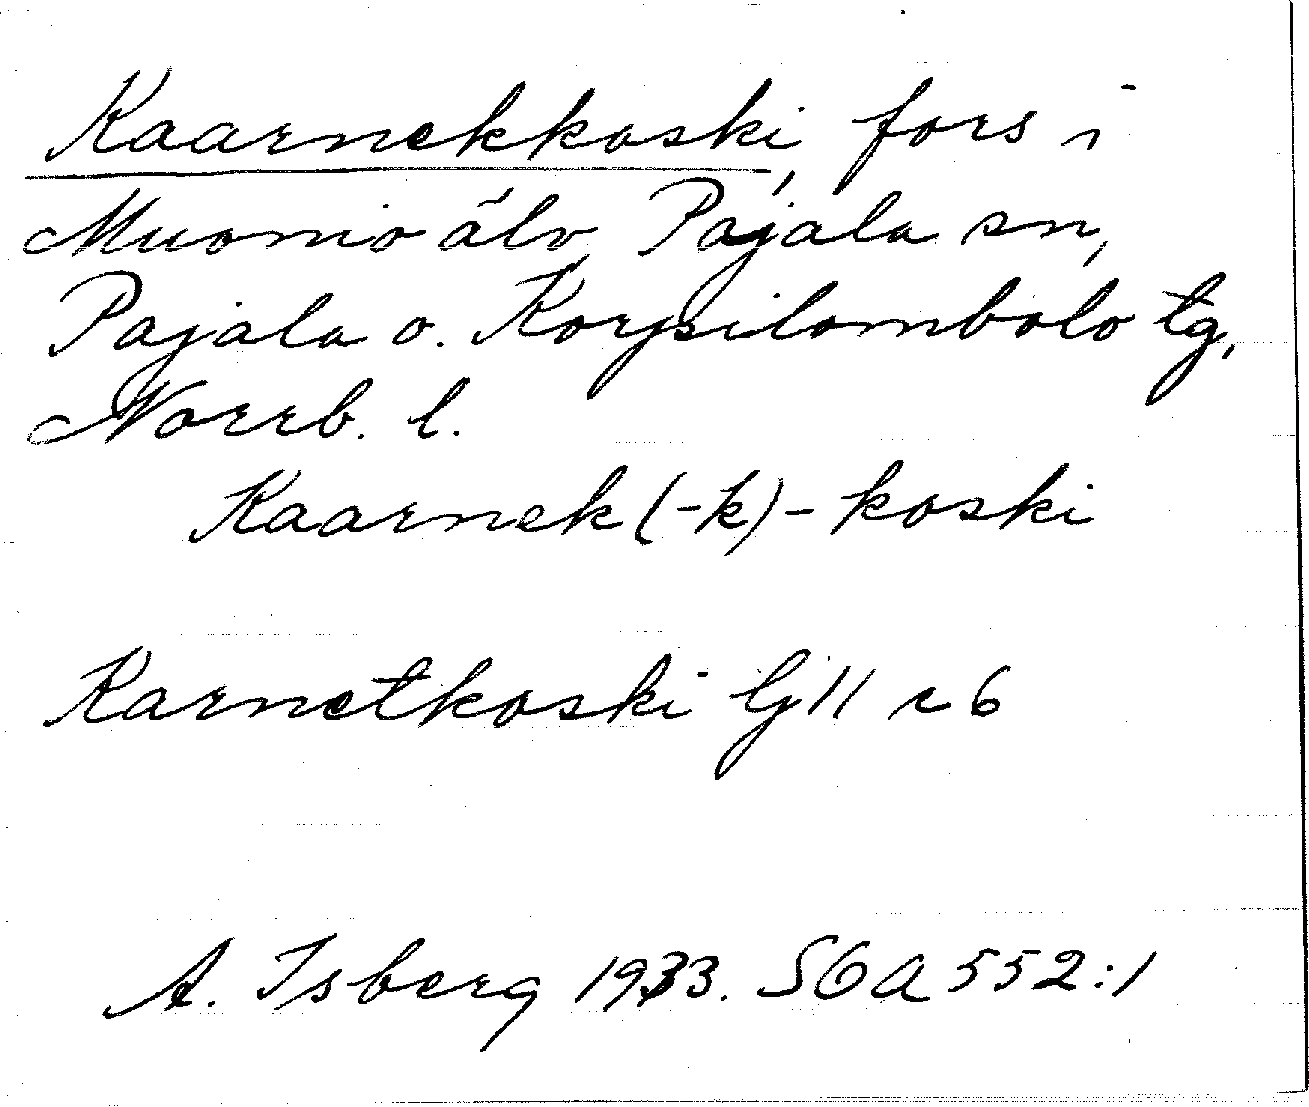 Kaarnekkoski, fors i
Muonio älv, Pajala sn,
Pajala o. Korpilombolo tg,
Norrb. l.
Kaarnek(-k)-koski
Karnetkoski Gj 11 c 6
A. Isberg 1933. SOA 552:1